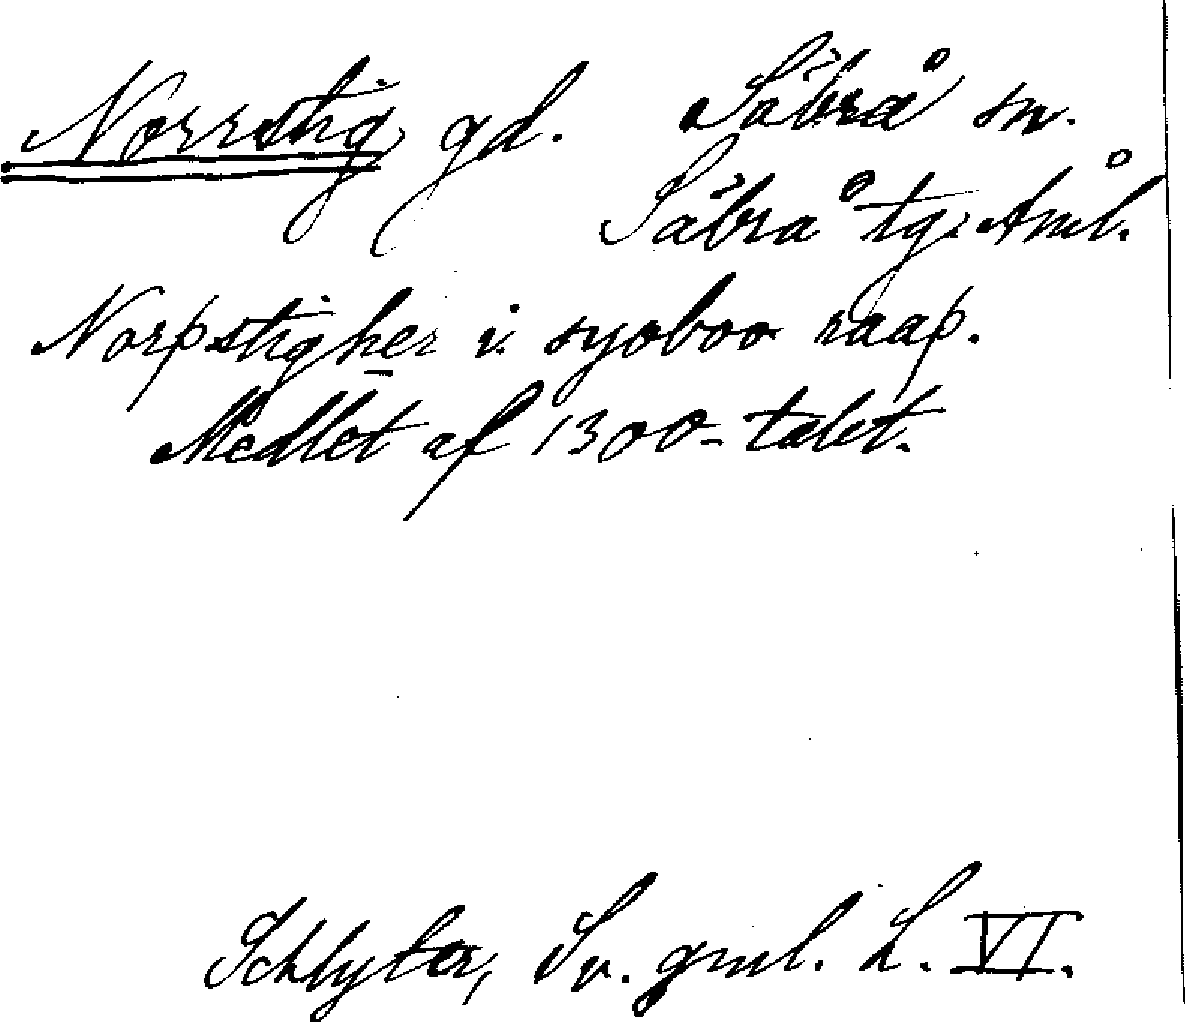 Norrstig gd. Säbrå sn.
Säbrå tg. Åml.
Norþstigher i syoboo raaþ.
Medlet af 1300-talet.
Schlyter, Sv. gml. L. VI.